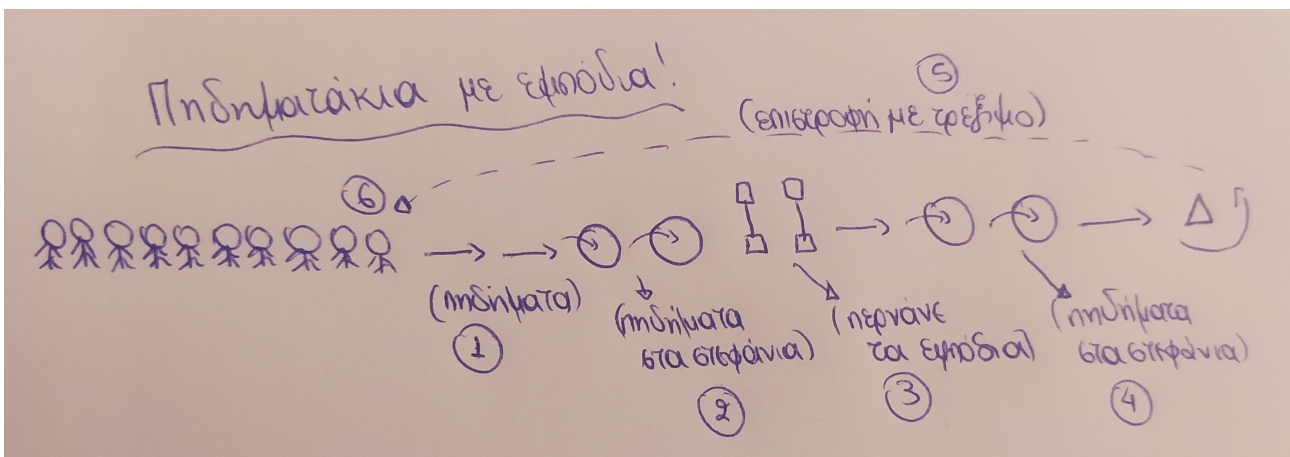 Πηδηματάκια με εμπόδια!
5
(επιστροφή με τρέξιμο)
6
(πηδήματα)
1
(πηδήματα
στα στεφάνια)
2
(περνάνε
τα εμπόδια)
3
(πηδήματα
στα στεφάνια)
4